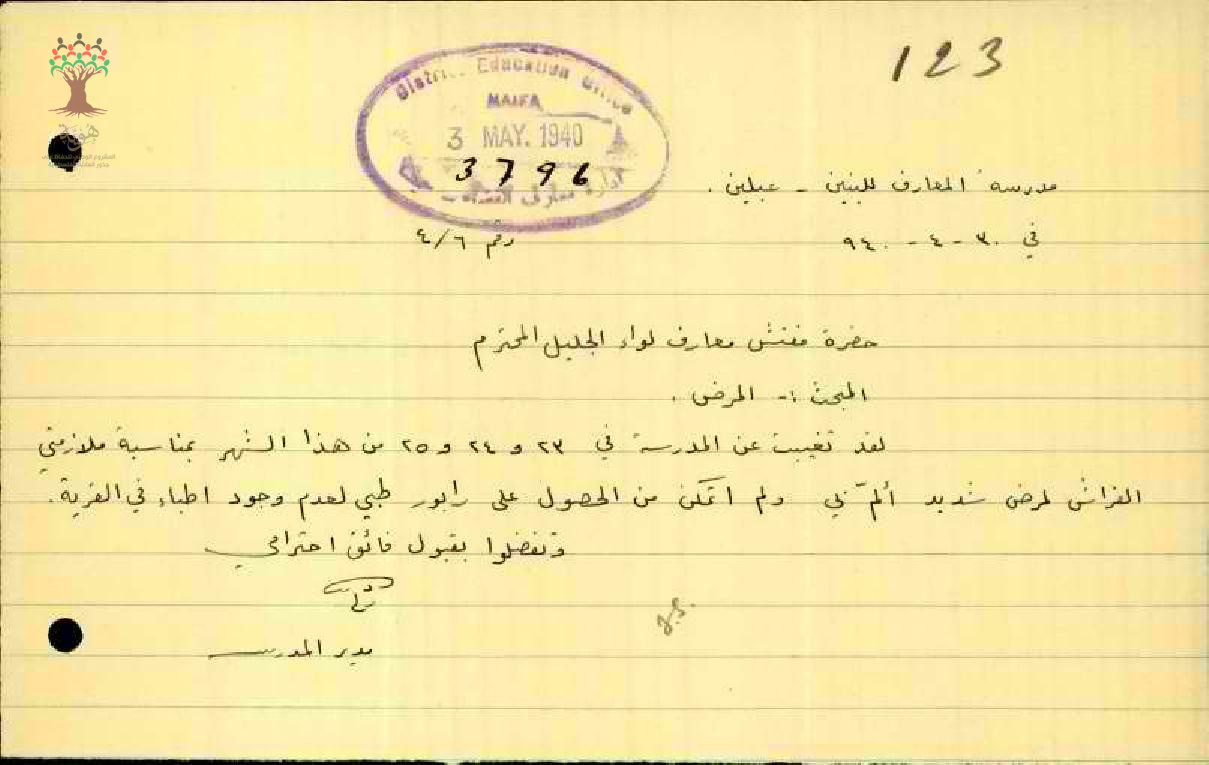 123
District Education Office
HAIFA
3 MAY. 1940
3796
مدرسة المعارف للبنين - عبلين.
في ٣٠ - ٤ - ٩٤٠
رقم ٤/٦
حضرة مفتش معارف لواء الجليل المحترم
المبحث :- المرض.
لقد تغيبت عن المدرسة في ٢٣ و ٢٤ و ٢٥ من هذا الشهر بمناسبة ملازمتي
الفراش لمرض شديد ألمّ بي ولم اتمكن من الحصول على رابور طبي لعدم وجود اطباء في القرية.
وتفضلوا بقبول فائق احترامي
مدير المدرسة
هوية